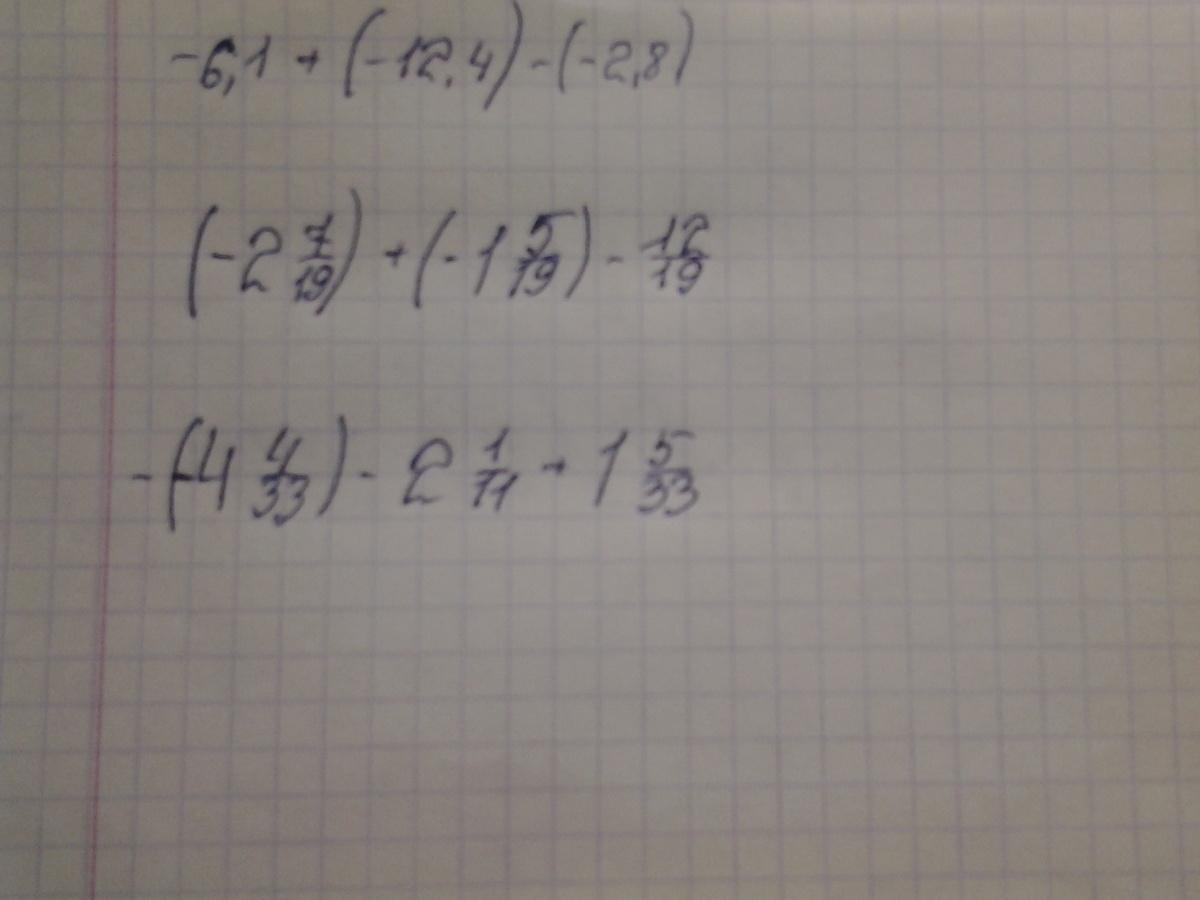 -6,1 + (-12,4) - (-2,8)
(-2 7/19) + (-1 5/19) - 12/19
-(-4 4/33) - 2 1/11 + 1 5/33